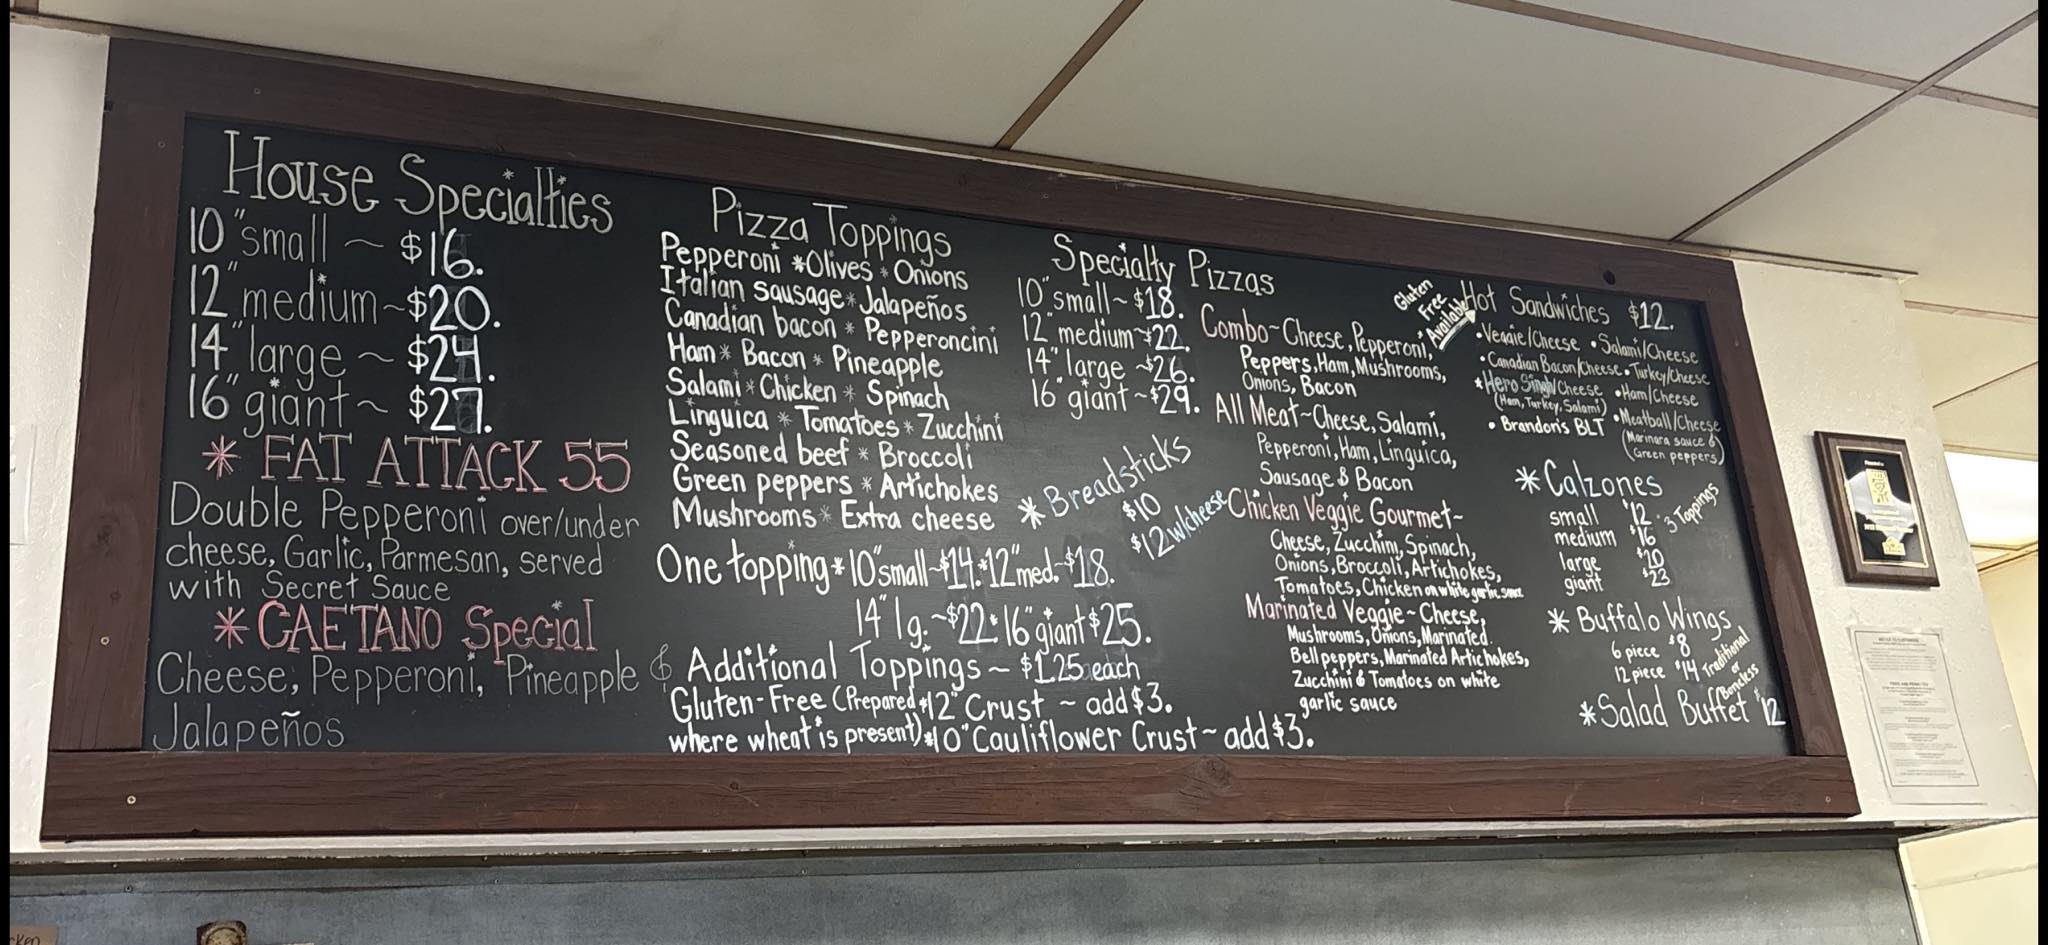 House Specialties
10" small ~ $16.
12" medium ~ $20.
14" large ~ $24.
16" giant ~ $27.
* FAT ATTACK 55
Double Pepperoni over/under
cheese, Garlic, Parmesan, served
with Secret Sauce
* CAETANO Special
Cheese, Pepperoni, Pineapple &
Jalapeños
Pizza Toppings
Pepperoni * Olives * Onions
Italian sausage * Jalapeños
Canadian bacon * Pepperoncini
Ham * Bacon * Pineapple
Salami * Chicken * Spinach
Linguica * Tomatoes * Zucchini
Seasoned beef * Broccoli
Green peppers * Artichokes
Mushrooms * Extra cheese
One topping * 10" small ~ $14. * 12" med. ~ $18.
14" lg. ~ $22. * 16" giant $25.
Additional Toppings ~ $1.25 each
Gluten-Free (Prepared * 12" Crust ~ add $3.
where wheat is present) * 10" Cauliflower Crust ~ add $3.
Specialty Pizzas
10" small ~ $18.
12" medium ~ $22.
14" large ~ $26.
16" giant ~ $29.
* Breadsticks
$10
$12 w/cheese
Combo ~ Cheese, Pepperoni,
Peppers, Ham, Mushrooms,
Onions, Bacon
All Meat ~ Cheese, Salami,
Pepperoni, Ham, Linguica,
Sausage & Bacon
Chicken Veggie Gourmet ~
Cheese, Zucchini, Spinach,
Onions, Broccoli, Artichokes,
Tomatoes, Chicken on white garlic sauce
Marinated Veggie ~ Cheese,
Mushrooms, Onions, Marinated
Bell peppers, Marinated Artichokes,
Zucchini & Tomatoes on white
garlic sauce
Gluten
Free
Available
Hot Sandwiches $12.
• Veggie/Cheese • Salami/Cheese
• Canadian Bacon/Cheese • Turkey/Cheese
* Hero Single/Cheese • Ham/Cheese
(Ham, Turkey, Salami) • Meatball/Cheese
• Brandon's BLT (Marinara sauce &
Green peppers)
* Calzones
small $12
medium $16
large $20
giant $23
3 Toppings
* Buffalo Wings
6 piece $8
12 piece $14
Traditional
or
Boneless
* Salad Buffet $12